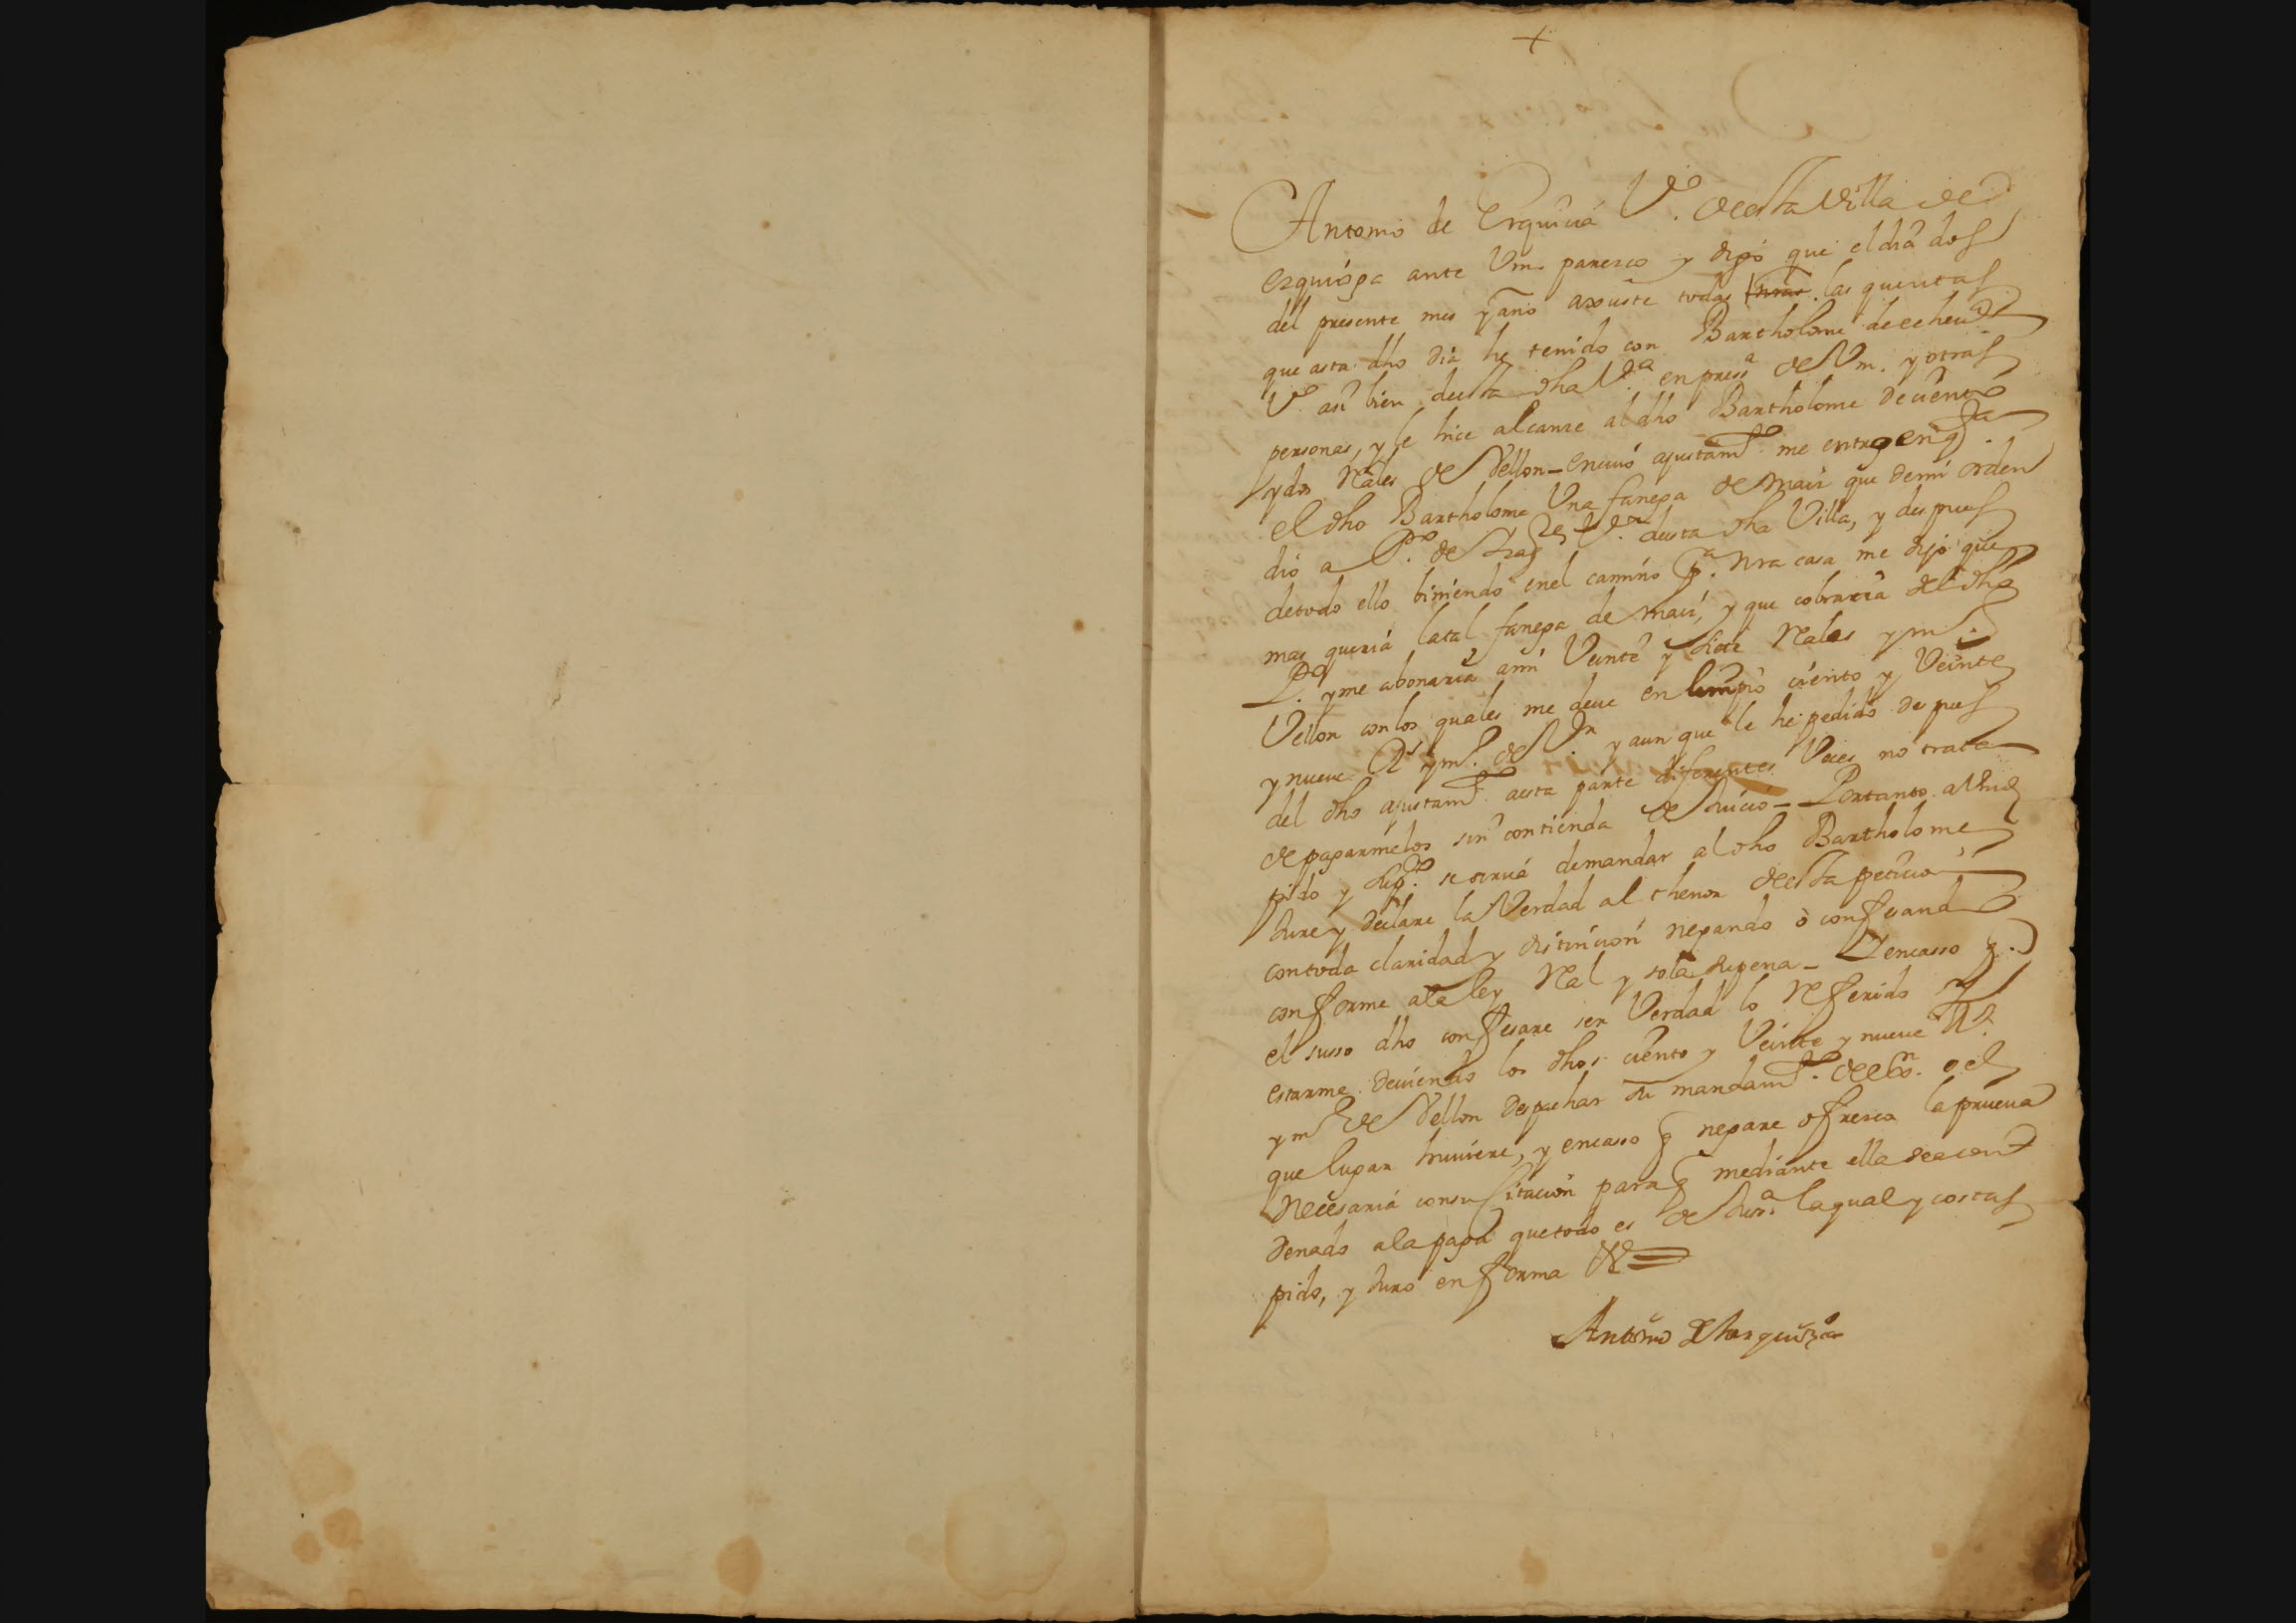 +
Antonio de Erquicia Vº. desta Villa de
ezquioga ante Vm. paresco y digo que el dia dos
del presente mes y año axuste todas las quentas
que asta dho dia he tenido con Bartholome de echeu
Vº. asi bien desta dha Vª. en pressª de Vm. y otras
personas, y le hice alcanze al dho Bartholome de ciento
y dos Reales de Vellon_ en cuio ajustamtº. me entro en qta.
el dho Bartholome Una fanega de maiz que de mi orden
dio a Pº. de Vº. desta dha Villa, y despues
de todo ello biniendo en el camino pª. nra casa me dijo que
mas queria la tal fanega de maiz, y que cobraria del dho
Pº. y me abonaria a mi Veinte y siete Reales y mº.
Vellon con los quales me deue en limpio ciento y Veinte
y nueve Rs y mº. de Vn. y aun que le he pedido despues
del dho ajustamtº. a esta parte diferentes Veces no trata
de pagarmelos sin contienda de Juicio_ Portanto a Vmd
pido y supcº. se sirua demandar al dho Bartholome
Jure y declare la Verdad al thenor desta peticion
con toda claridad y distincion negando ò confesando
conforme a la ley Real y so la supena_ Y en casso q.
el susso dho confesare ser Verdad lo Referido y
estarme deuiendo los dhos ciento y Veinte y nueve Rs.
y mº de Vellon despachar su mandamtº. de exon. o el
que lugar huuiere, y en casso q negare ofresco la prueua
Necesaria con su citacion para q mediante ella sea con
denado a la paga que todo es de Jusª. la qual y costas
pido, y Juro en forma &ª
Antonio de herquicia